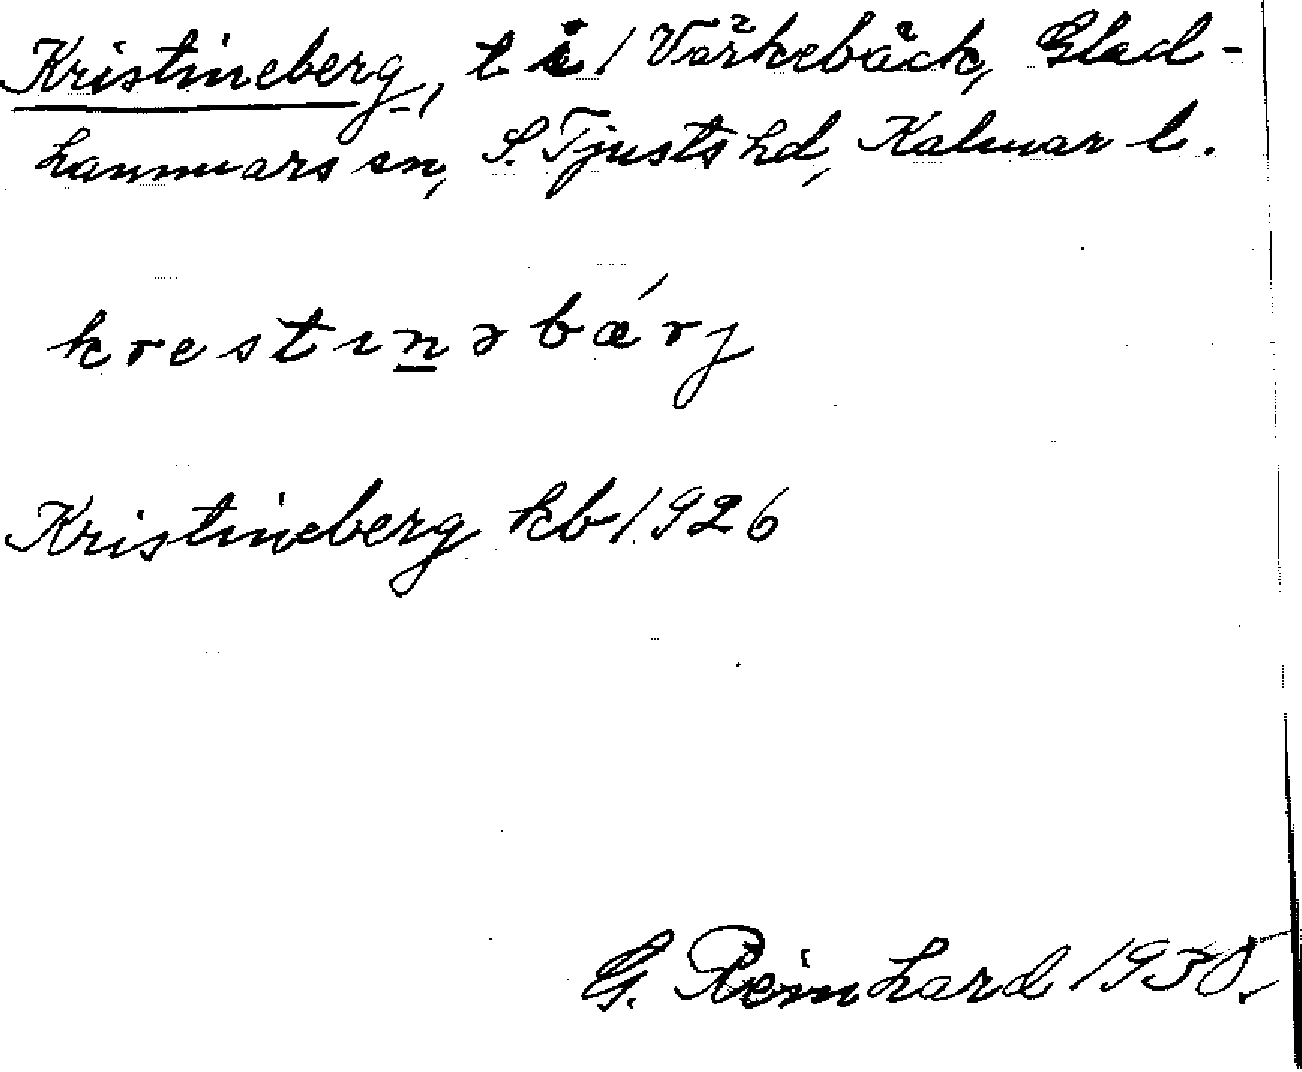 Kristineberg, t i / Vårkebäck, Glad-
hammars sn, S. Tjusts hd, Kalmar l.
krestınəbǽrj
Kristineberg kb 1926
G. Reinhard 1938.